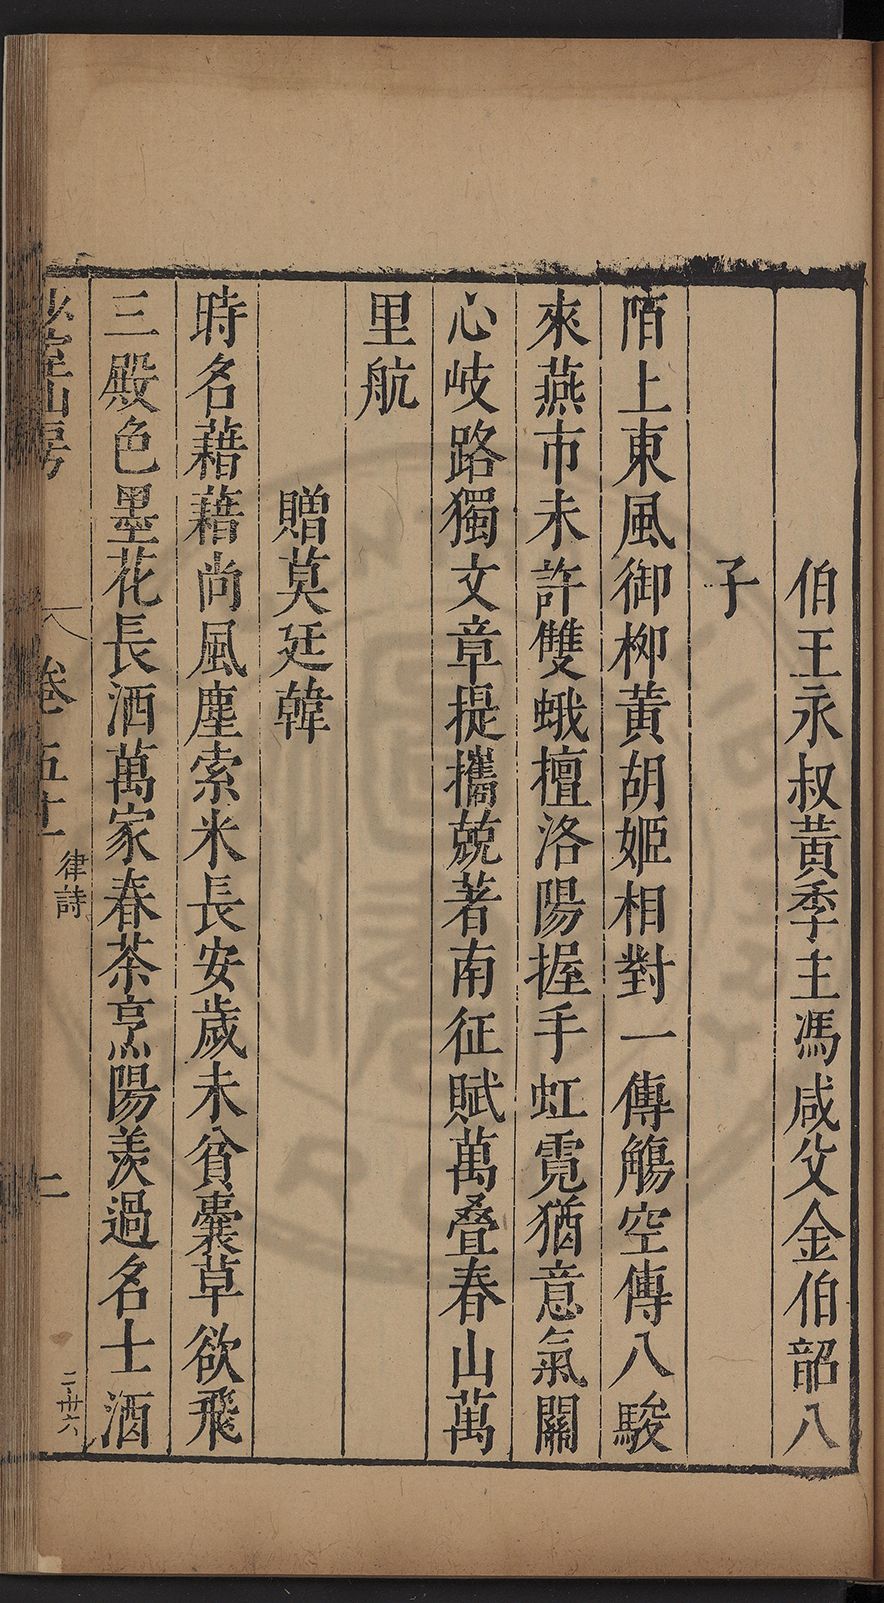 伯王永叔黃季主馮咸父金伯韶八
子
陌上東風御柳黃胡姬相對一傳觴空傳八駿
來燕市未許雙蛾擅洛陽握手虹霓猶意氣關
心岐路獨文章提攜兢著南征賦萬疊春山萬
里航
贈莫廷韓
時名藉藉尚風塵索米長安歲未貧囊草欲飛
三殿色墨花長洒萬家春茶烹陽羨過名士酒
山房
卷五十
律詩
二
二卅六